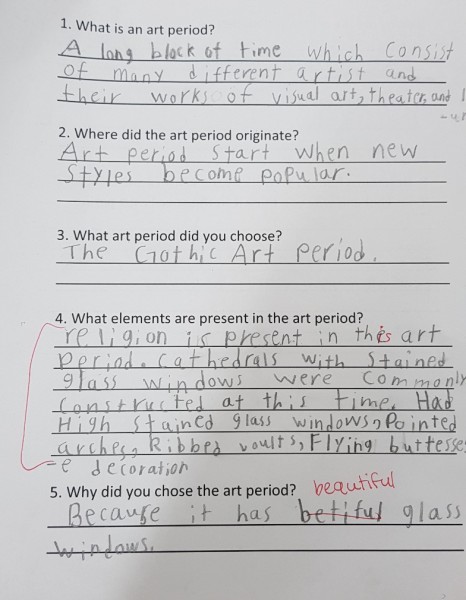 1. What is an art period?
A long block of time which consist
of many different artist and
their works of visual art, theater, and
2. Where did the art period originate?
Art period start when new
styles become popular.
3. What art period did you choose?
The Gothic Art period.
4. What elements are present in the art period?
religion is present in this art
period. cathedrals with stained
glass windows were commonly
constructed at this time. Had
High stained glass windows, Pointed
arches, Ribbed voults, Flying buttesse
decoration
5. Why did you chose the art period? beautiful
Because it has betiful glass
windows.